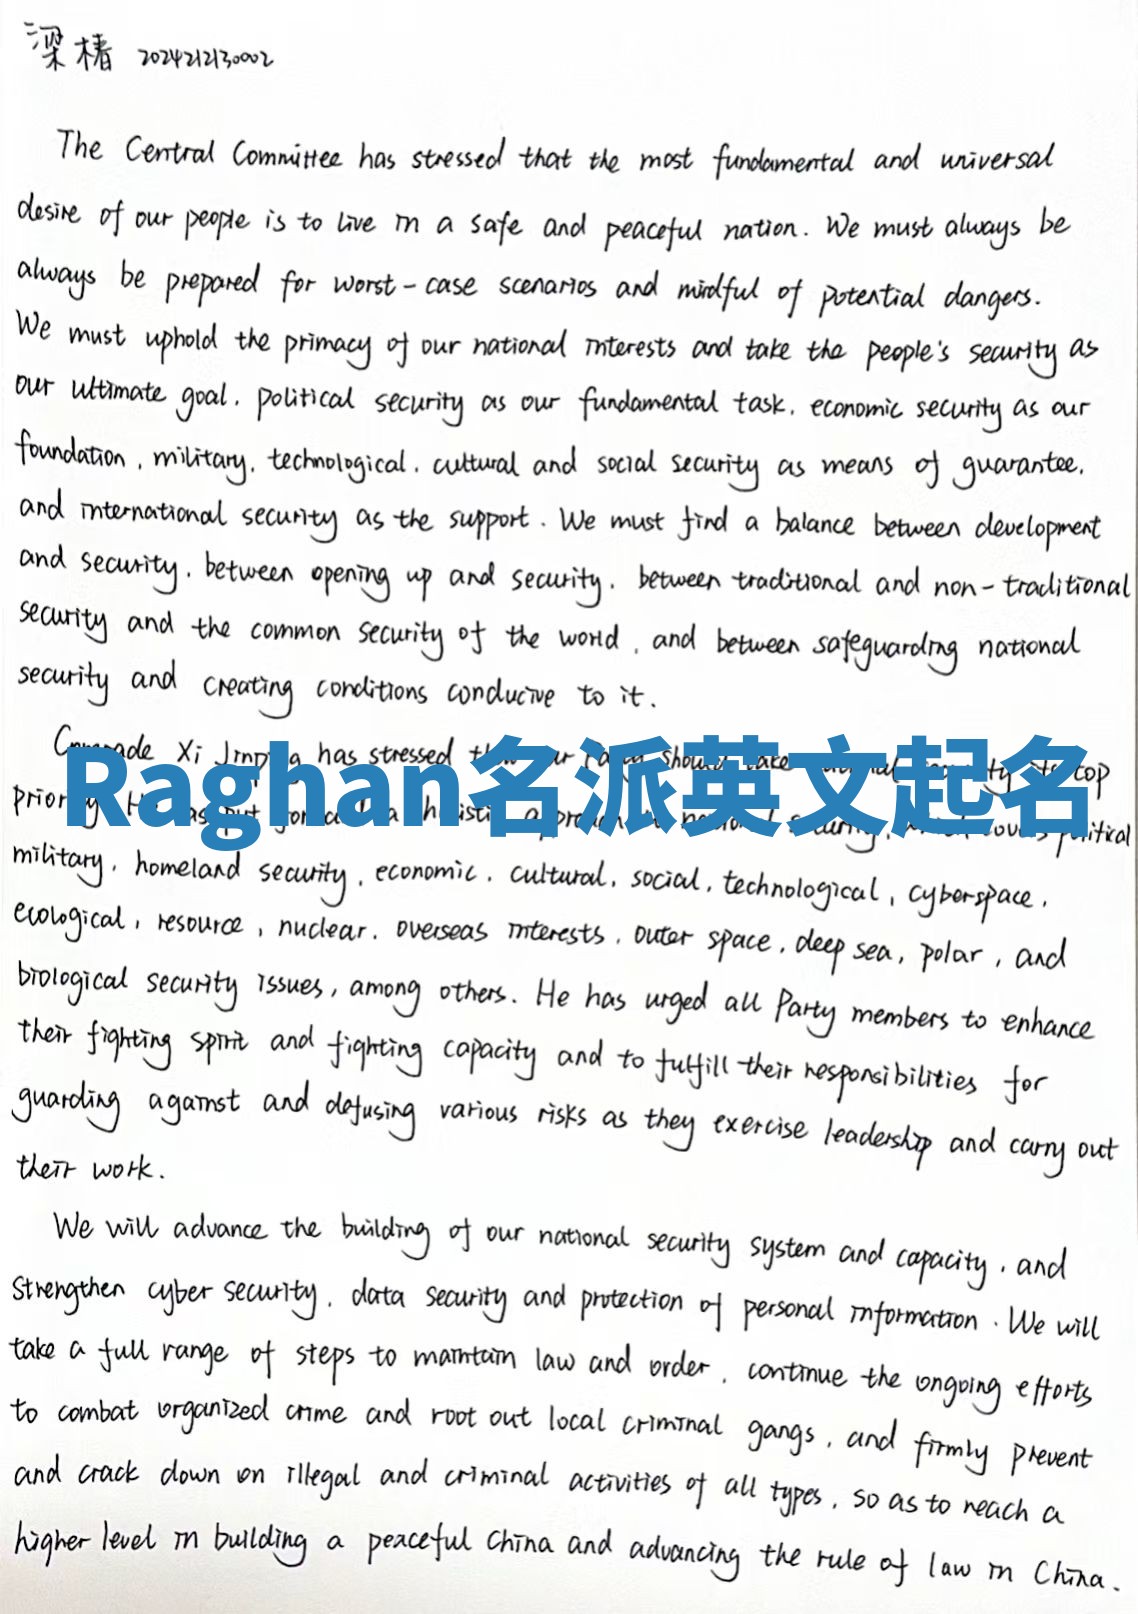 梁 2024212130002
The Central Committee has stressed that the most fundamental and universal
desire of our people is to live in a safe and peaceful nation. We must always be
always be prepared for worst-case scenarios and mindful of potential dangers.
We must uphold the primacy of our national interests and take the people's security as
our ultimate goal, political security as our fundamental task, economic security as our
foundation, military, technological, cultural and social security as means of guarantee,
and international security as the support. We must find a balance between development
and security, between opening up and security, between traditional and non-traditional
security and the common security of the world, and between safeguarding national
security and creating conditions conducive to it.
Comrade Xi Jinping has stressed our Party should take its top
Raghan名派英文起名
priority. He has put forward a holistic approach national security, which covers political
military, homeland security, economic, cultural, social, technological, cyberspace,
ecological, resource, nuclear, overseas interests, outer space, deep sea, polar, and
biological security issues, among others. He has urged all Party members to enhance
their fighting spirit and fighting capacity and to fulfill their responsibilities for
guarding against and defusing various risks as they exercise leadership and carry out
their work.
We will advance the building of our national security system and capacity, and
strengthen cyber security, data security and protection of personal information. We will
take a full range of steps to maintain law and order, continue the ongoing efforts
to combat organized crime and root out local criminal gangs, and firmly prevent
and crack down on illegal and criminal activities of all types, so as to reach a
higher level in building a peaceful China and advancing the rule of law in China.